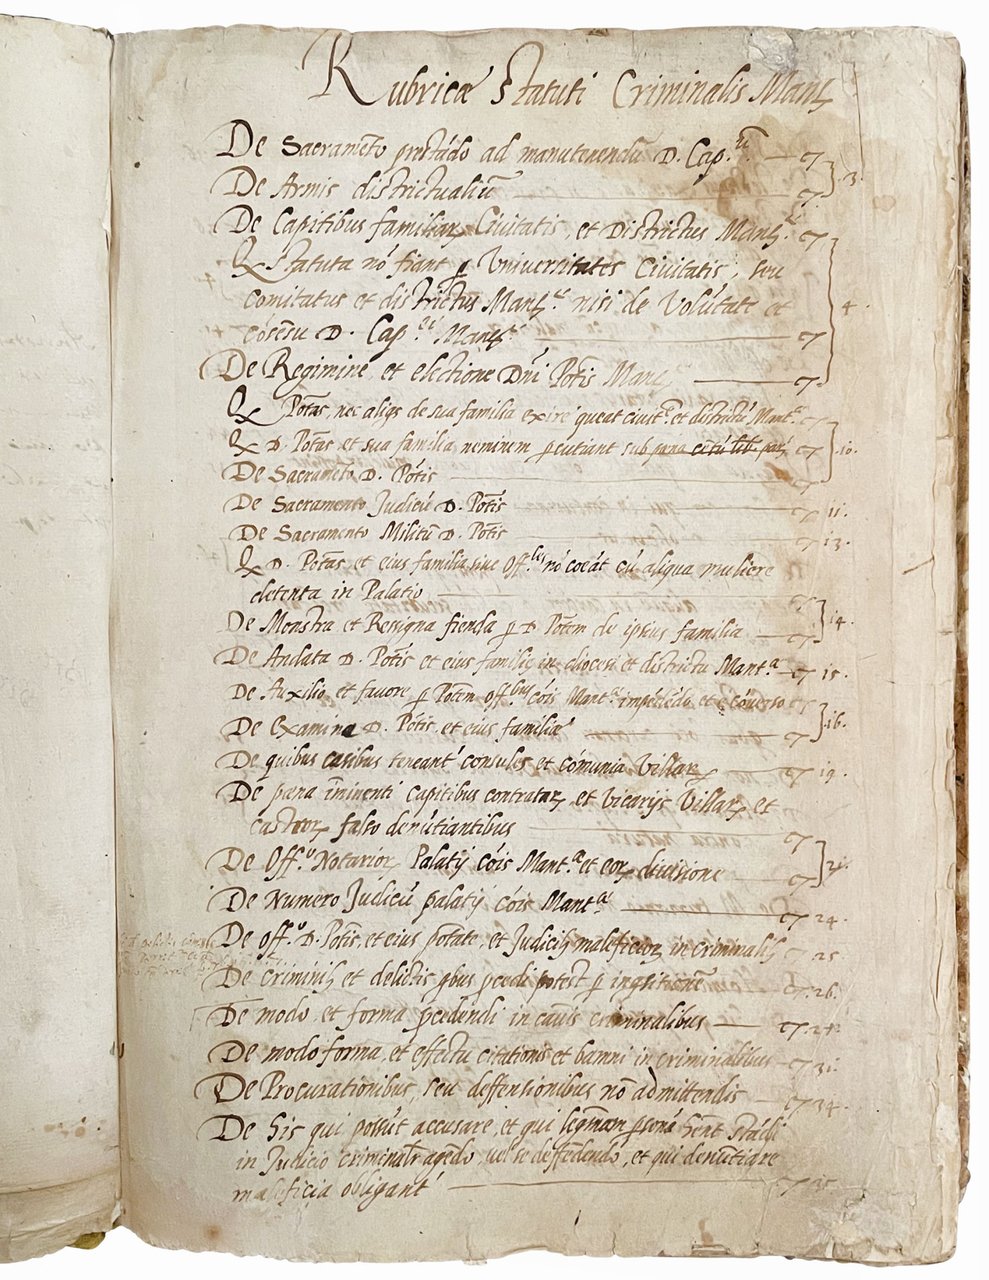 Rubricæ Statuti Criminalis Mant
De Sacramēto prestādo ad manutenendū D. Cap. — c7 3.
De Armis districtualiū — c7
De Capitibus familiar Civitatis, et Districtus Mant. c7
Q Statuta nō fiant p Universitates Civitatis, seu
Comitatus et districtus Mant nisi de Volūtate et 4.
cōsēsu D. Cap. Mant — c7
De Regimine, et electione Dñi Potis Mant — c7
Q Potas, nec aliqs de sua familia exire queat civit. et districtū Mant. c7
Q D. Potas et sua familia neminem pcutiant sub pæna c7 10.
De Sacramēto D. Potis — c7
De Sacramento Judicū D. Potis — c7 11.
De Sacramento Militū D. Potis — c7 13.
Q D. Potas, et eius familia, sive Off.les nō coeāt cū aliqua muliere
detenta in Palatio — c7
De Monstra et Ressigna fienda p D. Potem de ipsius familia — c7 14.
De Andata D. Potis et eius familię in diocesi et districtu Mant.a — c7 15.
De Auxilio et favore p Potem off.bus cōis Mant.a impēdēdo et e cōverso c7
De Examine D. Potis, et eius familiæ — c7 16.
De quibus casibus teneant consules et cōmunia Villar — c7 19.
De pæna īminenti capitibus contratar et Vicarijs Villar et
castror falso denūtiantibus — c7
De Off.o Notarior Palatij cōis Mant.a et eor divisione — c7 21.
De Numero Judicū palatij cōis Mant.æ — c7 24.
De off.o D. Potis, et eius potate, et Judicis maleficior in criminalib c7 25.
De criminib et delictis qbus pcedi potest p inqsitionē c7. 26.
De modo, et forma pcedendi in causis criminalibus — c7. 27.
De modo forma, et effectu citationis et banni in criminalibus — c7 31.
De Procurationibus, seu deffensionibus nō admittendis — c7 34.
De his qui possūt accusare, et qui legitimam psonā hēnt stādi
in Judicio criminalr agēdo, vel se deffēdendo, et qui denūtiare
maleficia obligant — c7 35.